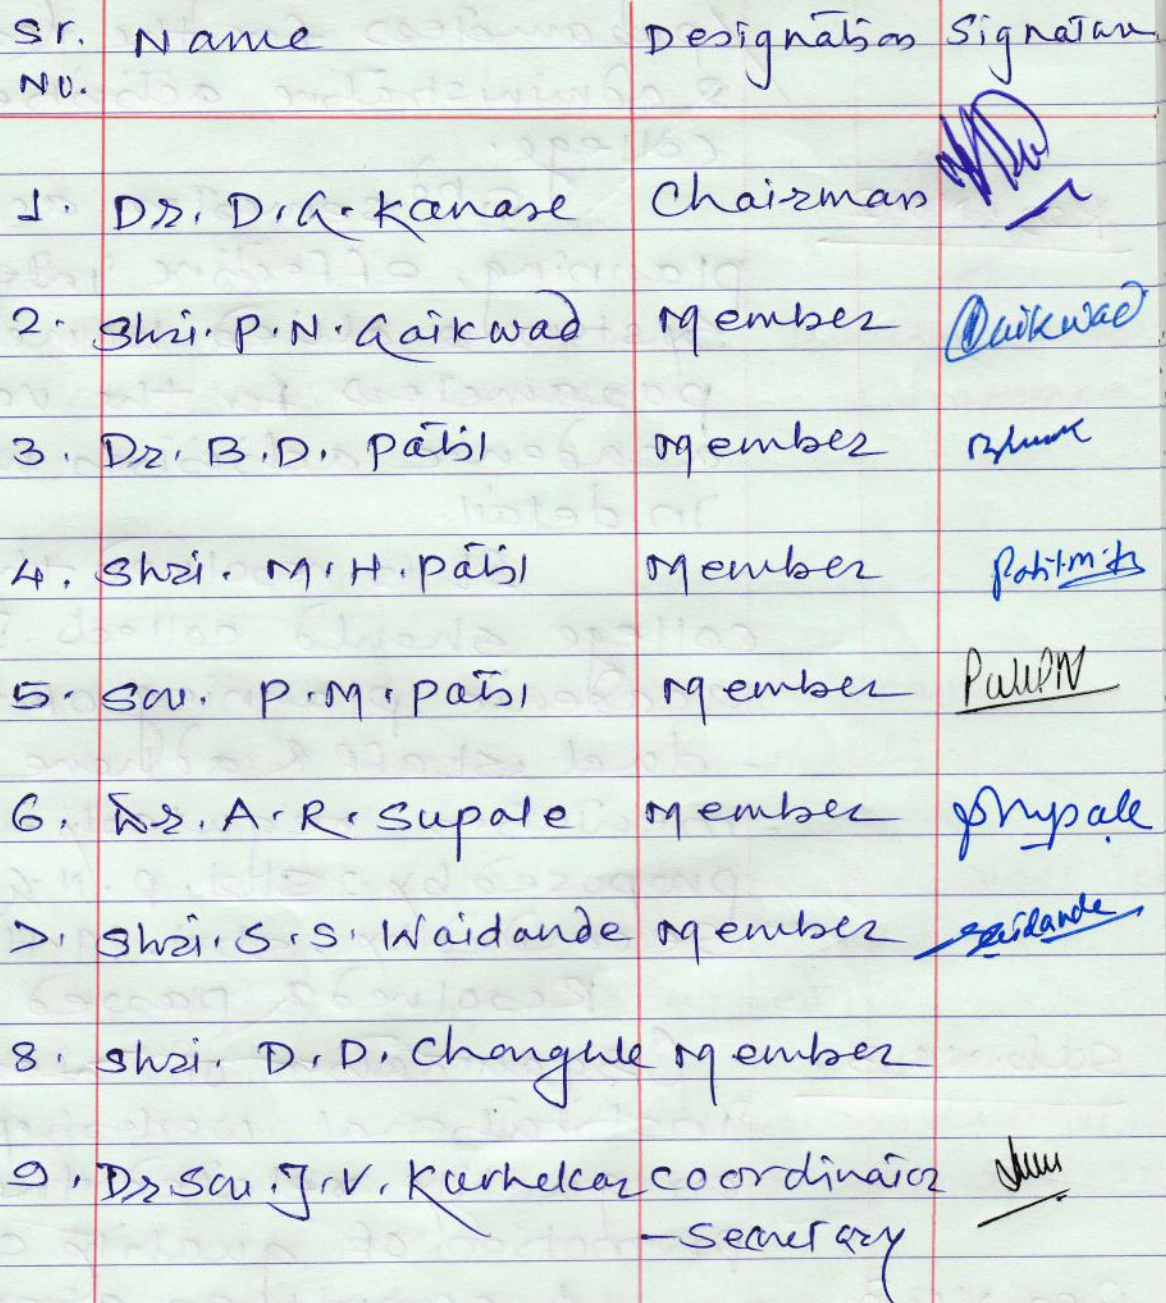 Sr. Name Designation Signature
No.
1. Dr. D. G. Kanase Chairman
2. Shri. P. N. Gaikwad Member Gaikwad
3. Dr. B. D. Patil Member
4. Shri. M. H. Patil Member Patilmh
5. Sou. P. M. Patil Member
6. Dr. A. R. Supale Member
7. Shri. S. S. Waidande Member
8. Shri. D. D. Chougule Member
9. Dr Sou. J. V. Kurhekar Coordinator
-Secretary